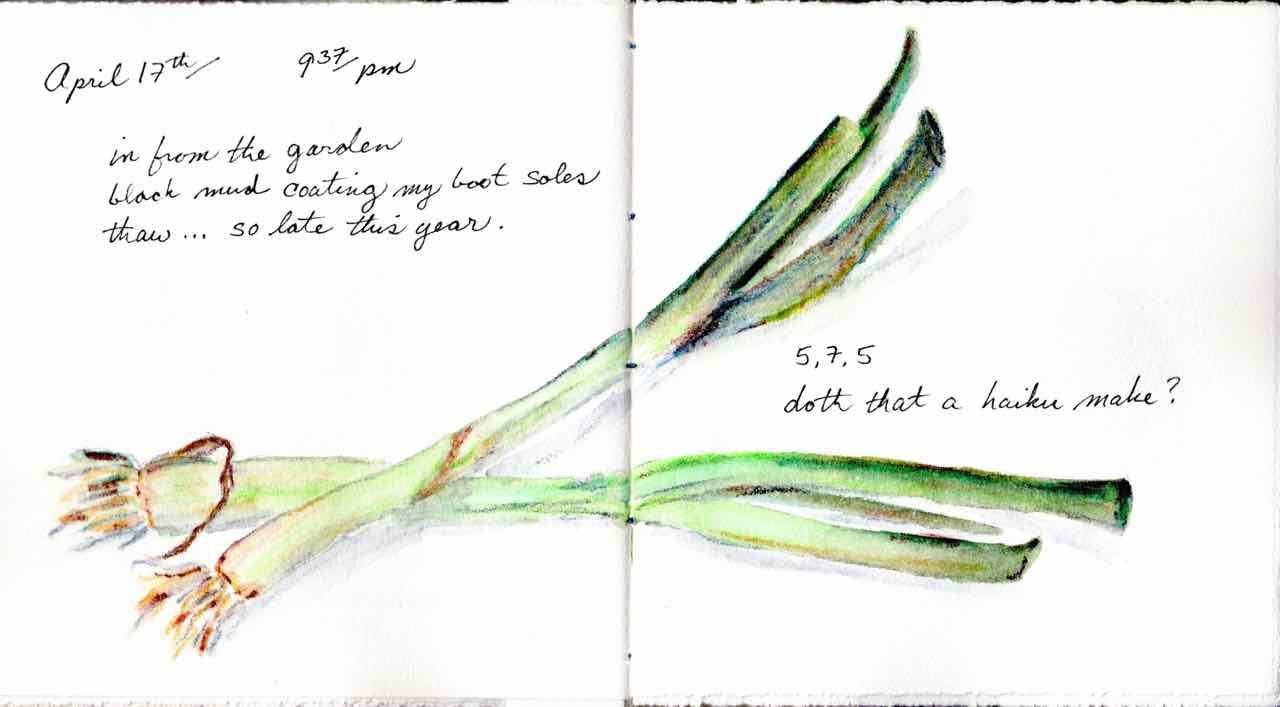 April 17th/ 9 37/ pm
in from the garden
black mud coating my boot soles
thaw... so late this year.
5, 7, 5
doth that a haiku make?